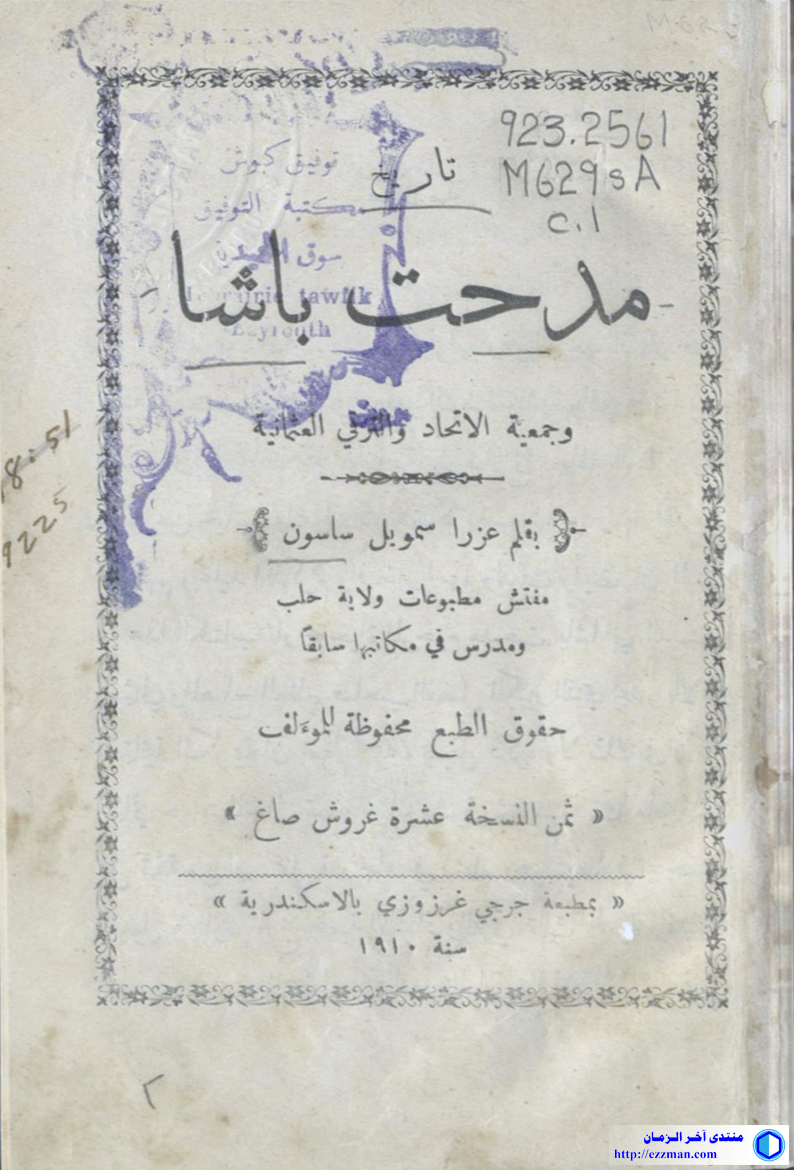 M62
923.2561
M629sA
c.1
توفيق كبوش
مكتبة التوفيق
سوق
Librairie tawfik
Beyrouth
تاريخ
مدحت باشا
وجمعية الاتحاد والترقي العثمانية
بقلم عزرا سمويل ساسون
مفتش مطبوعات ولاية حلب
ومدرس في مكاتبها سابقًا
حقوق الطبع محفوظة للموءلف
« ثمن النسخة عشرة غروش صاغ »
« بمطبعة جرجي غرزوزي بالاسكندرية »
سنة ١٩١٠
18:51
9225
٢
منتدى آخر الزمان
http://ezzman.com